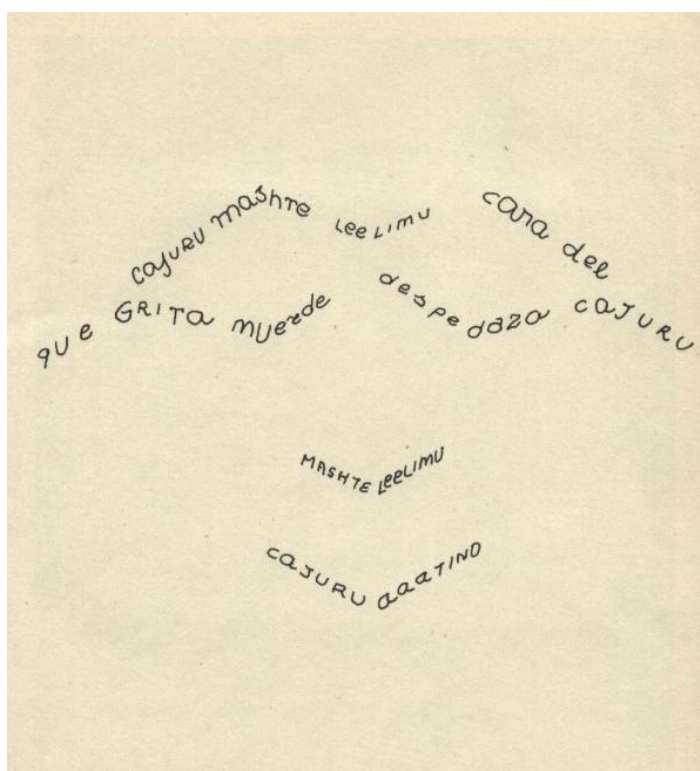 cajURU mashTe LeeLimu
cara del
que GRITa mUerde
despedaza caJURU
MASHTE LeeLimU
caJURU aaaTINO